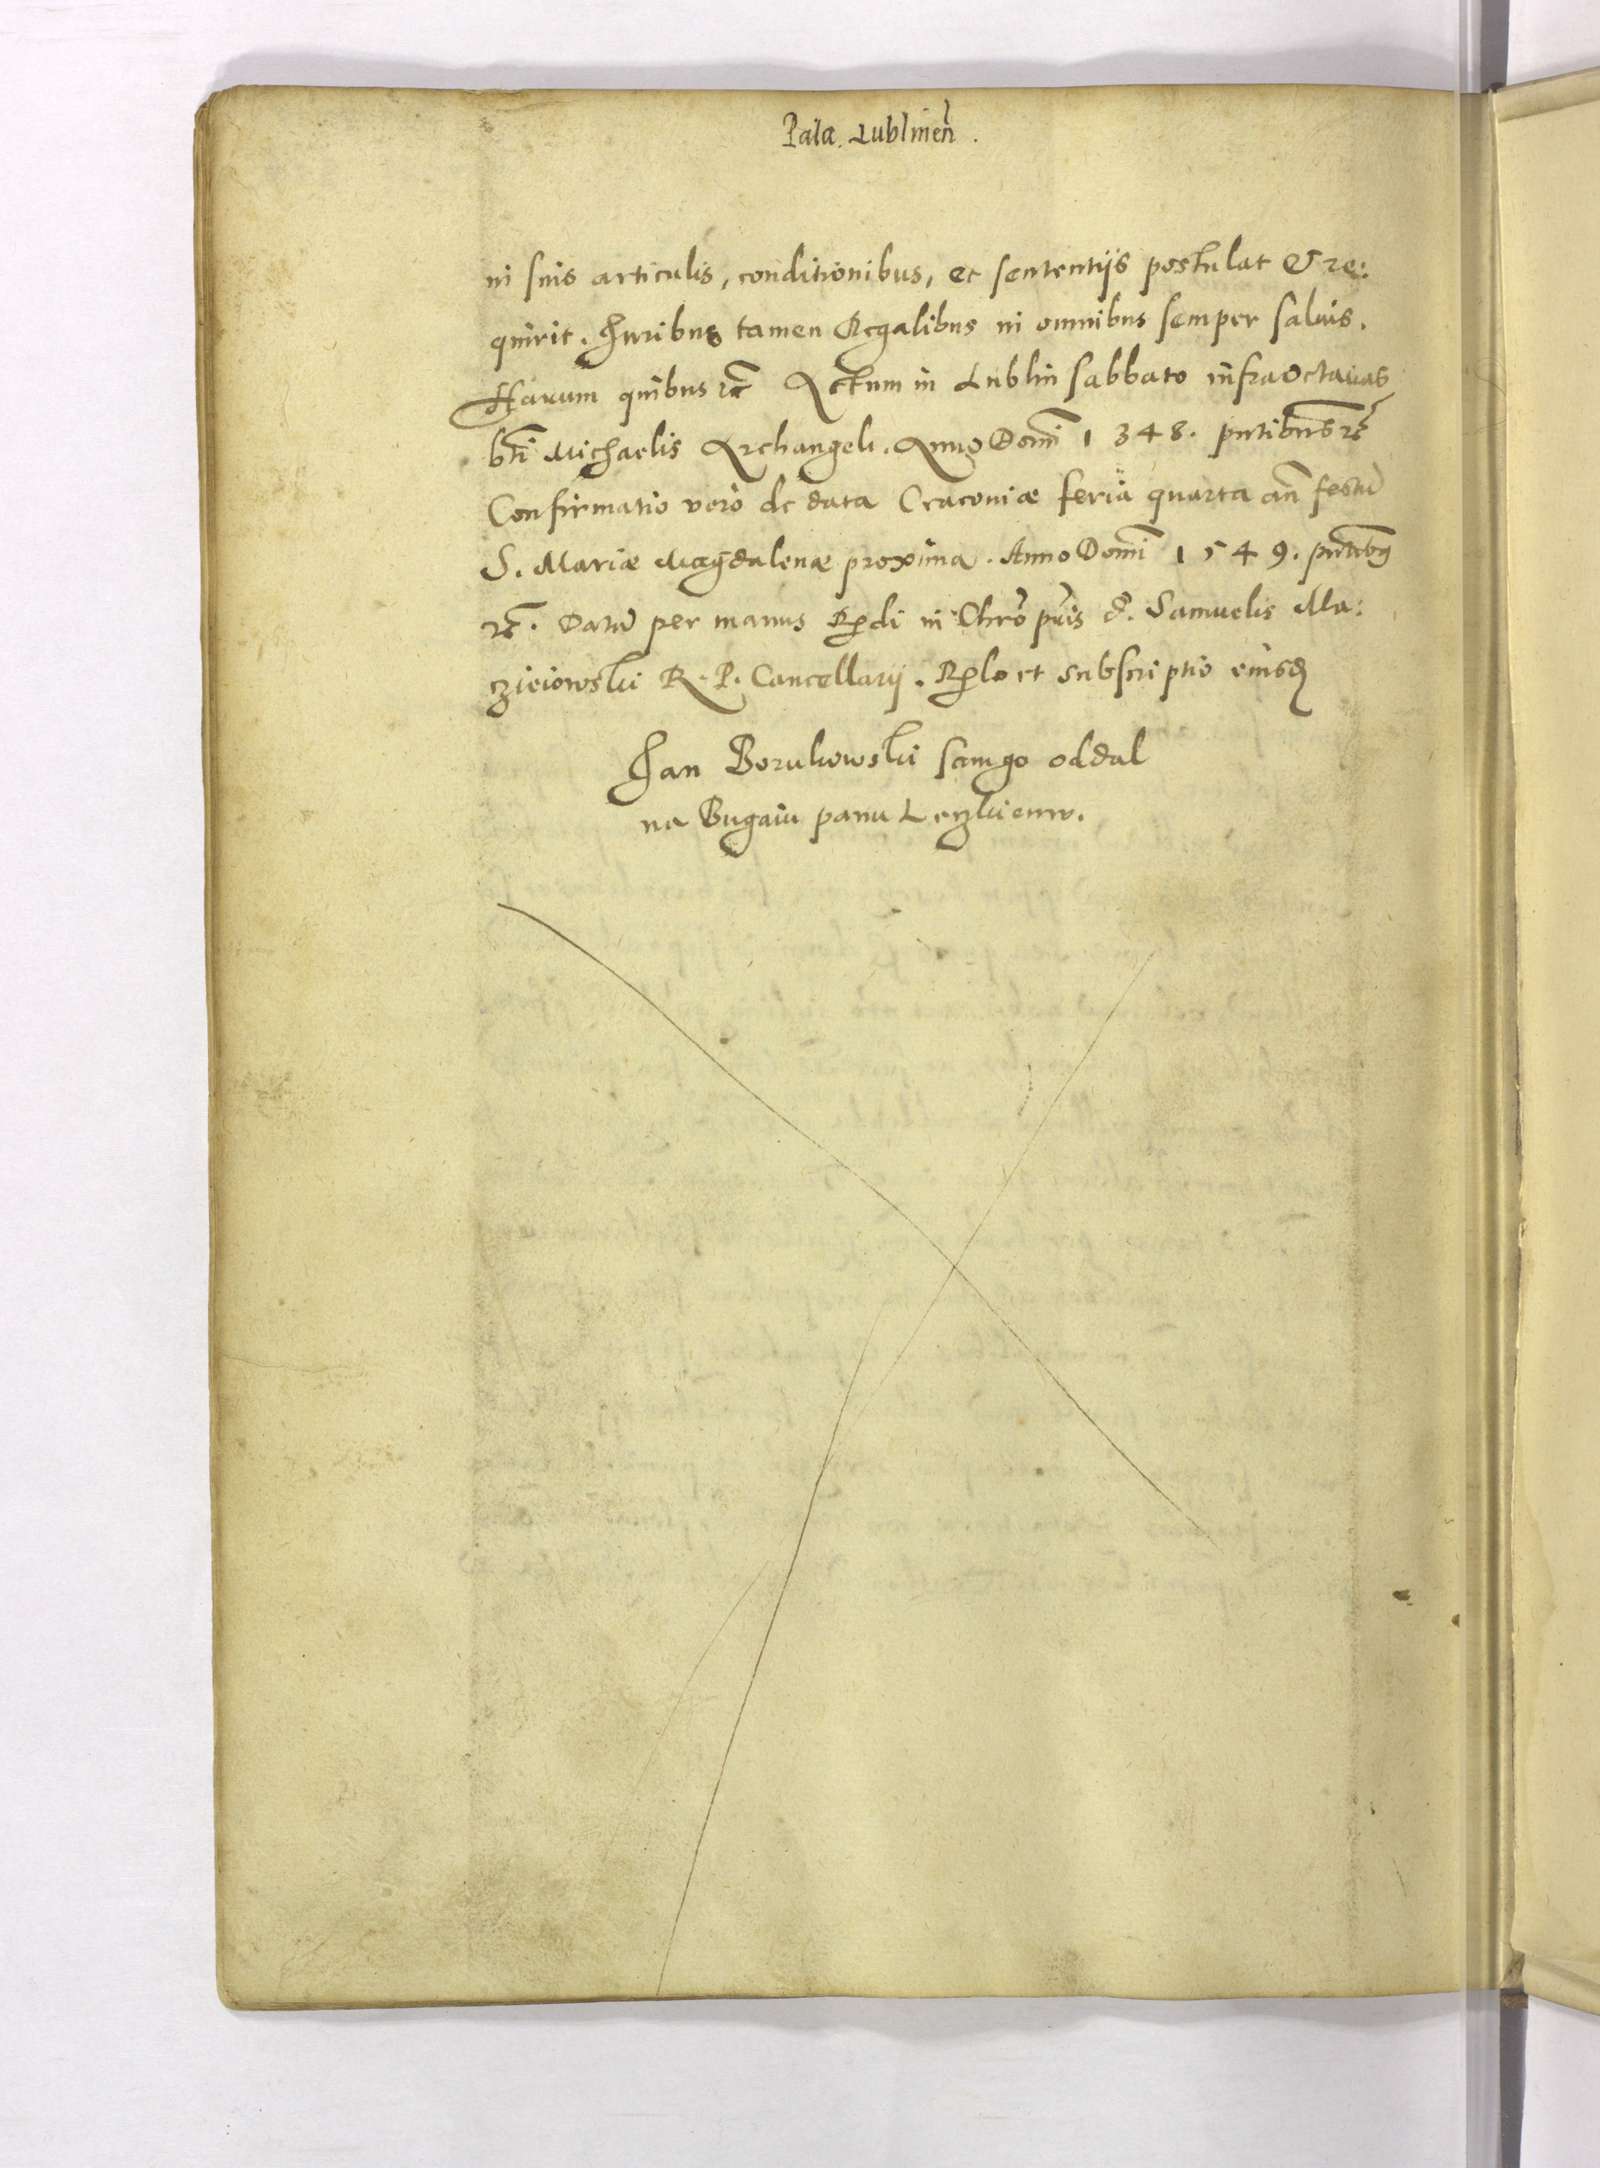 Pala. Lublinen̄.
in suis articulis, conditionibus, et sententijs postulat & re:
quirit. Iuribus tamen Regalibus in omnibus semper saluis.
Harum quibus rc̃ Actum in Lublin sabbato infra Octauas
bti Michaelis Archangeli. Anno Domi 1348. pntibus rc̃
Confirmatio verò de data Cracoviæ feria quarta añ festũ
S. Mariæ Magdalenæ proxima. Anno Domi 1549. pntibus
rc̃. Datũ per manus Rdi in Chro pris d. Samuelis Ma:
czieiowski R. P. Cancellarij. Rlo et subscriptio eiusd
Jan Borukowski samgo oddal
na Bugaiu panu Lenzkiemu.